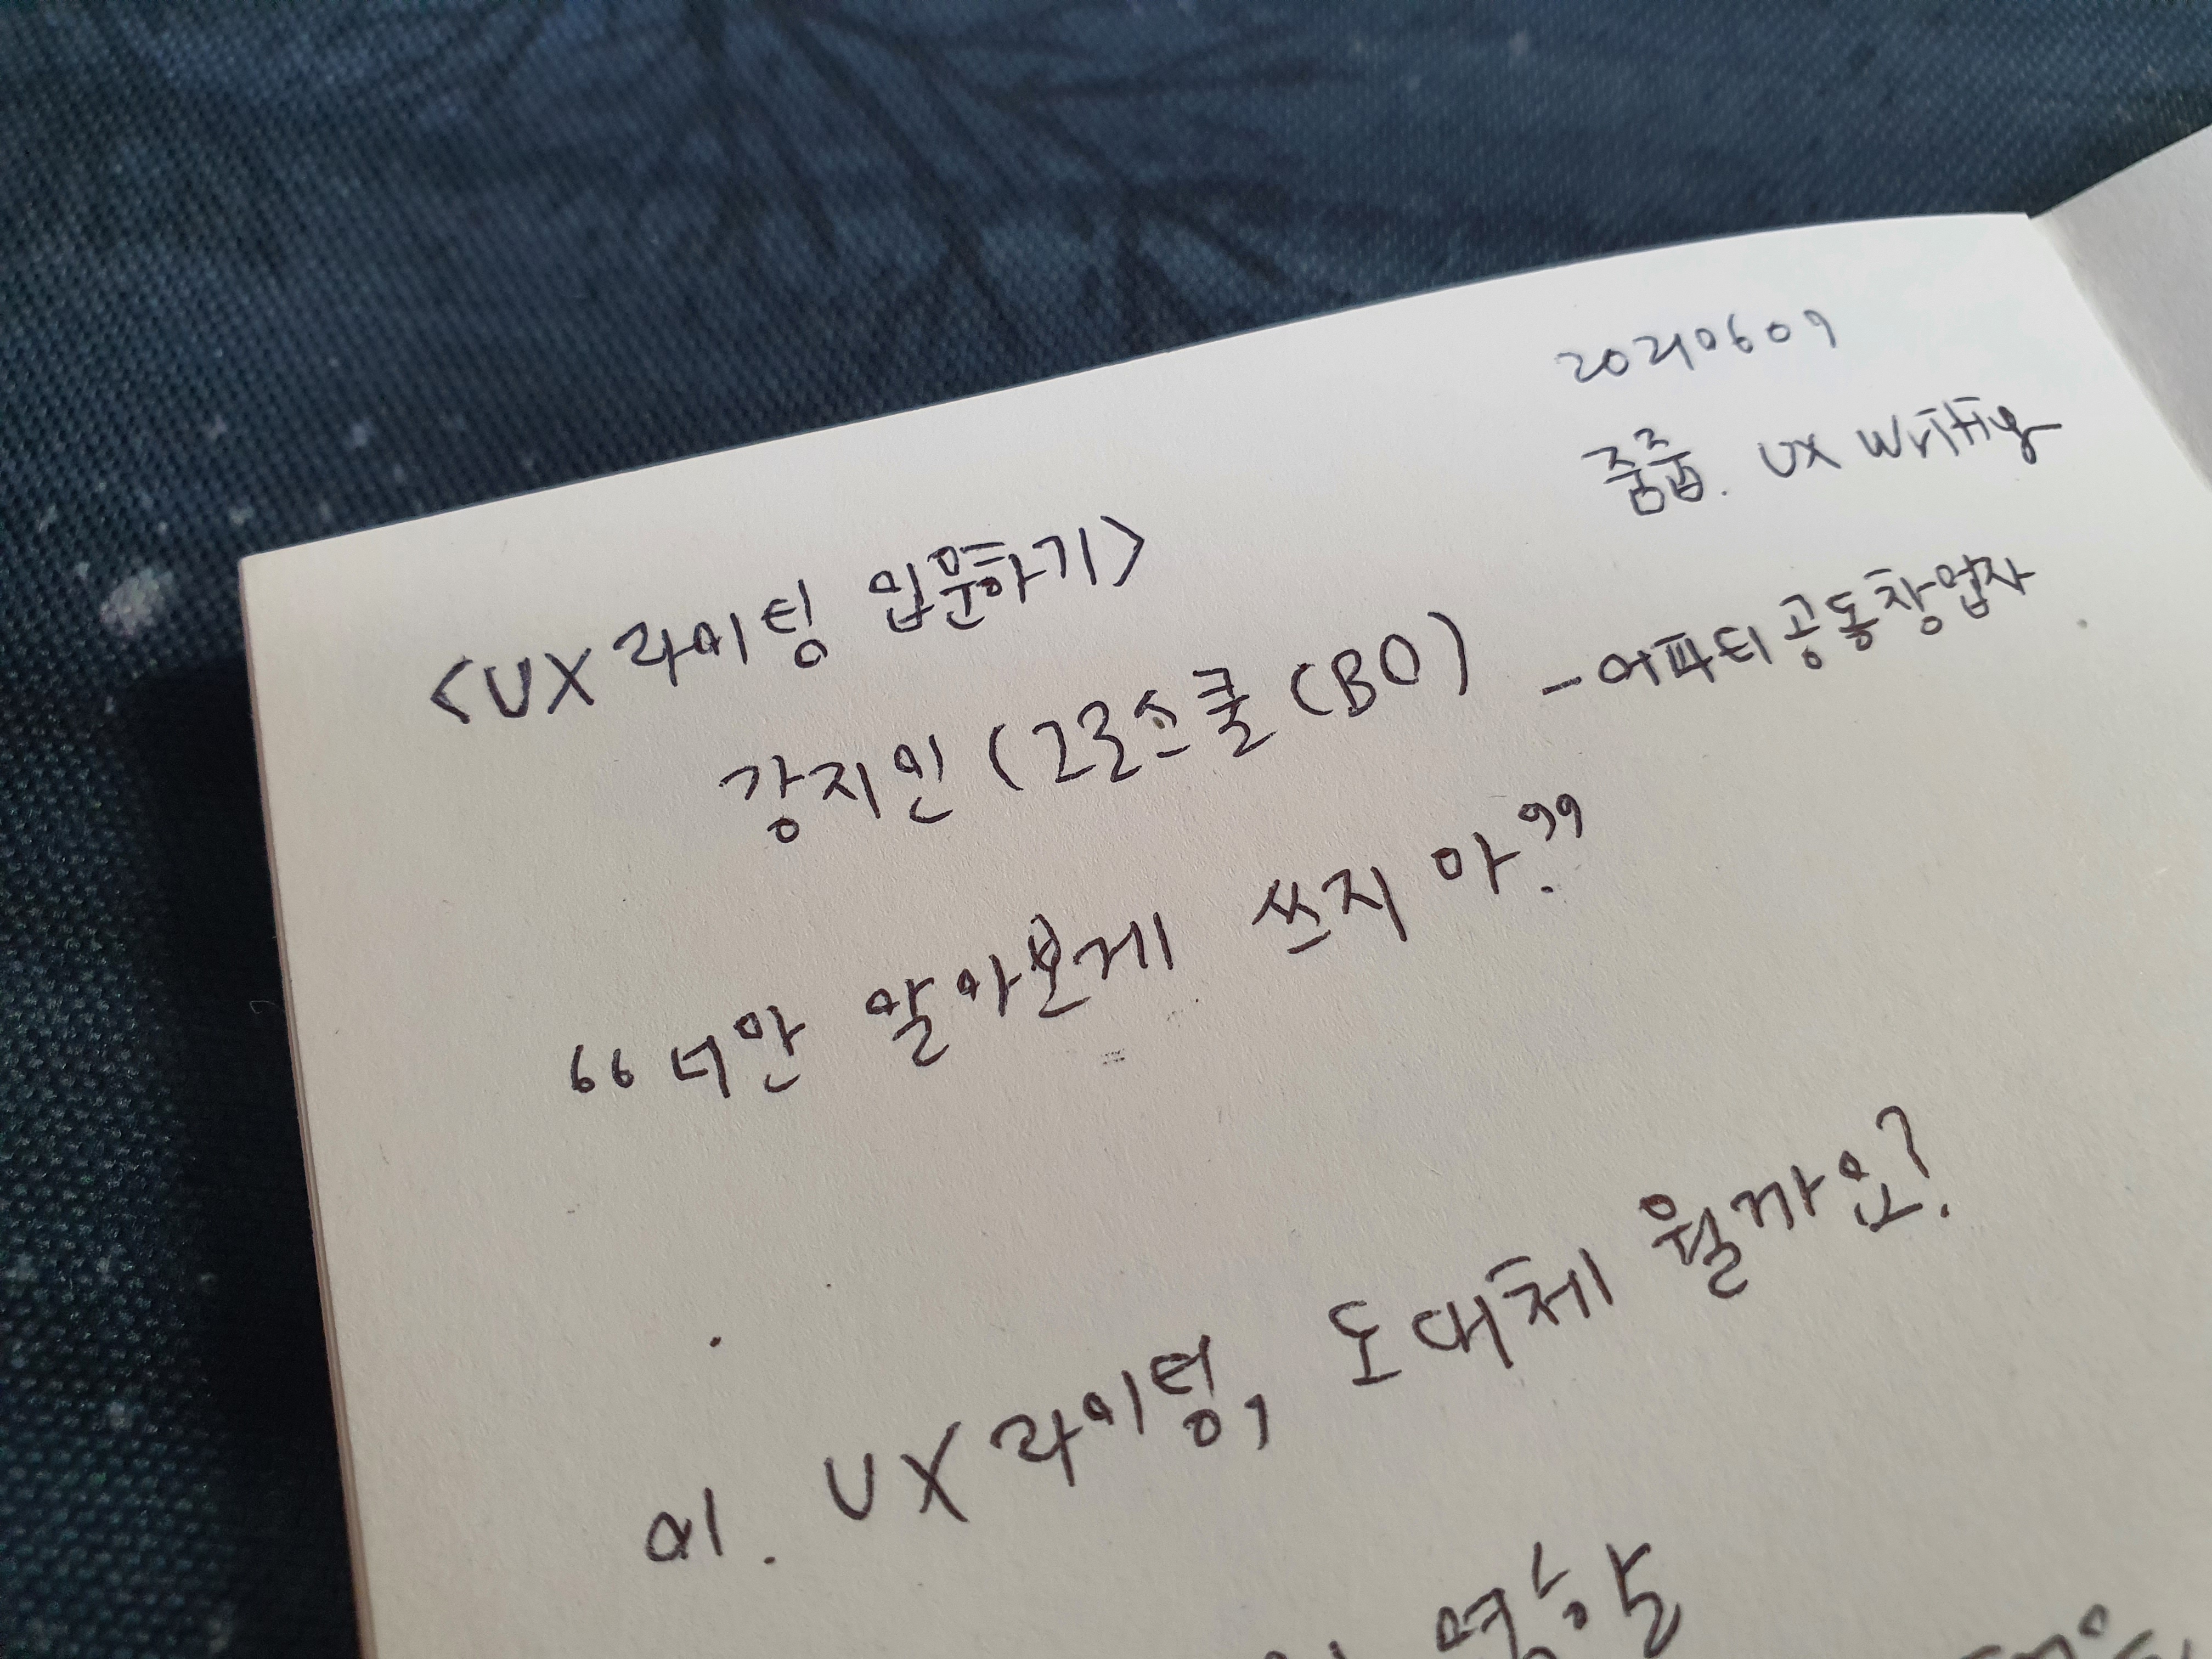 20210609
줌줌. UX Writing
<UX 라이팅 입문하기>
강지인 (그로스쿨 CBO) - 어피티 공동창업자
“너만 알아보게 쓰지 마?”
01. UX 라이팅, 도대체 뭘까요?
역할